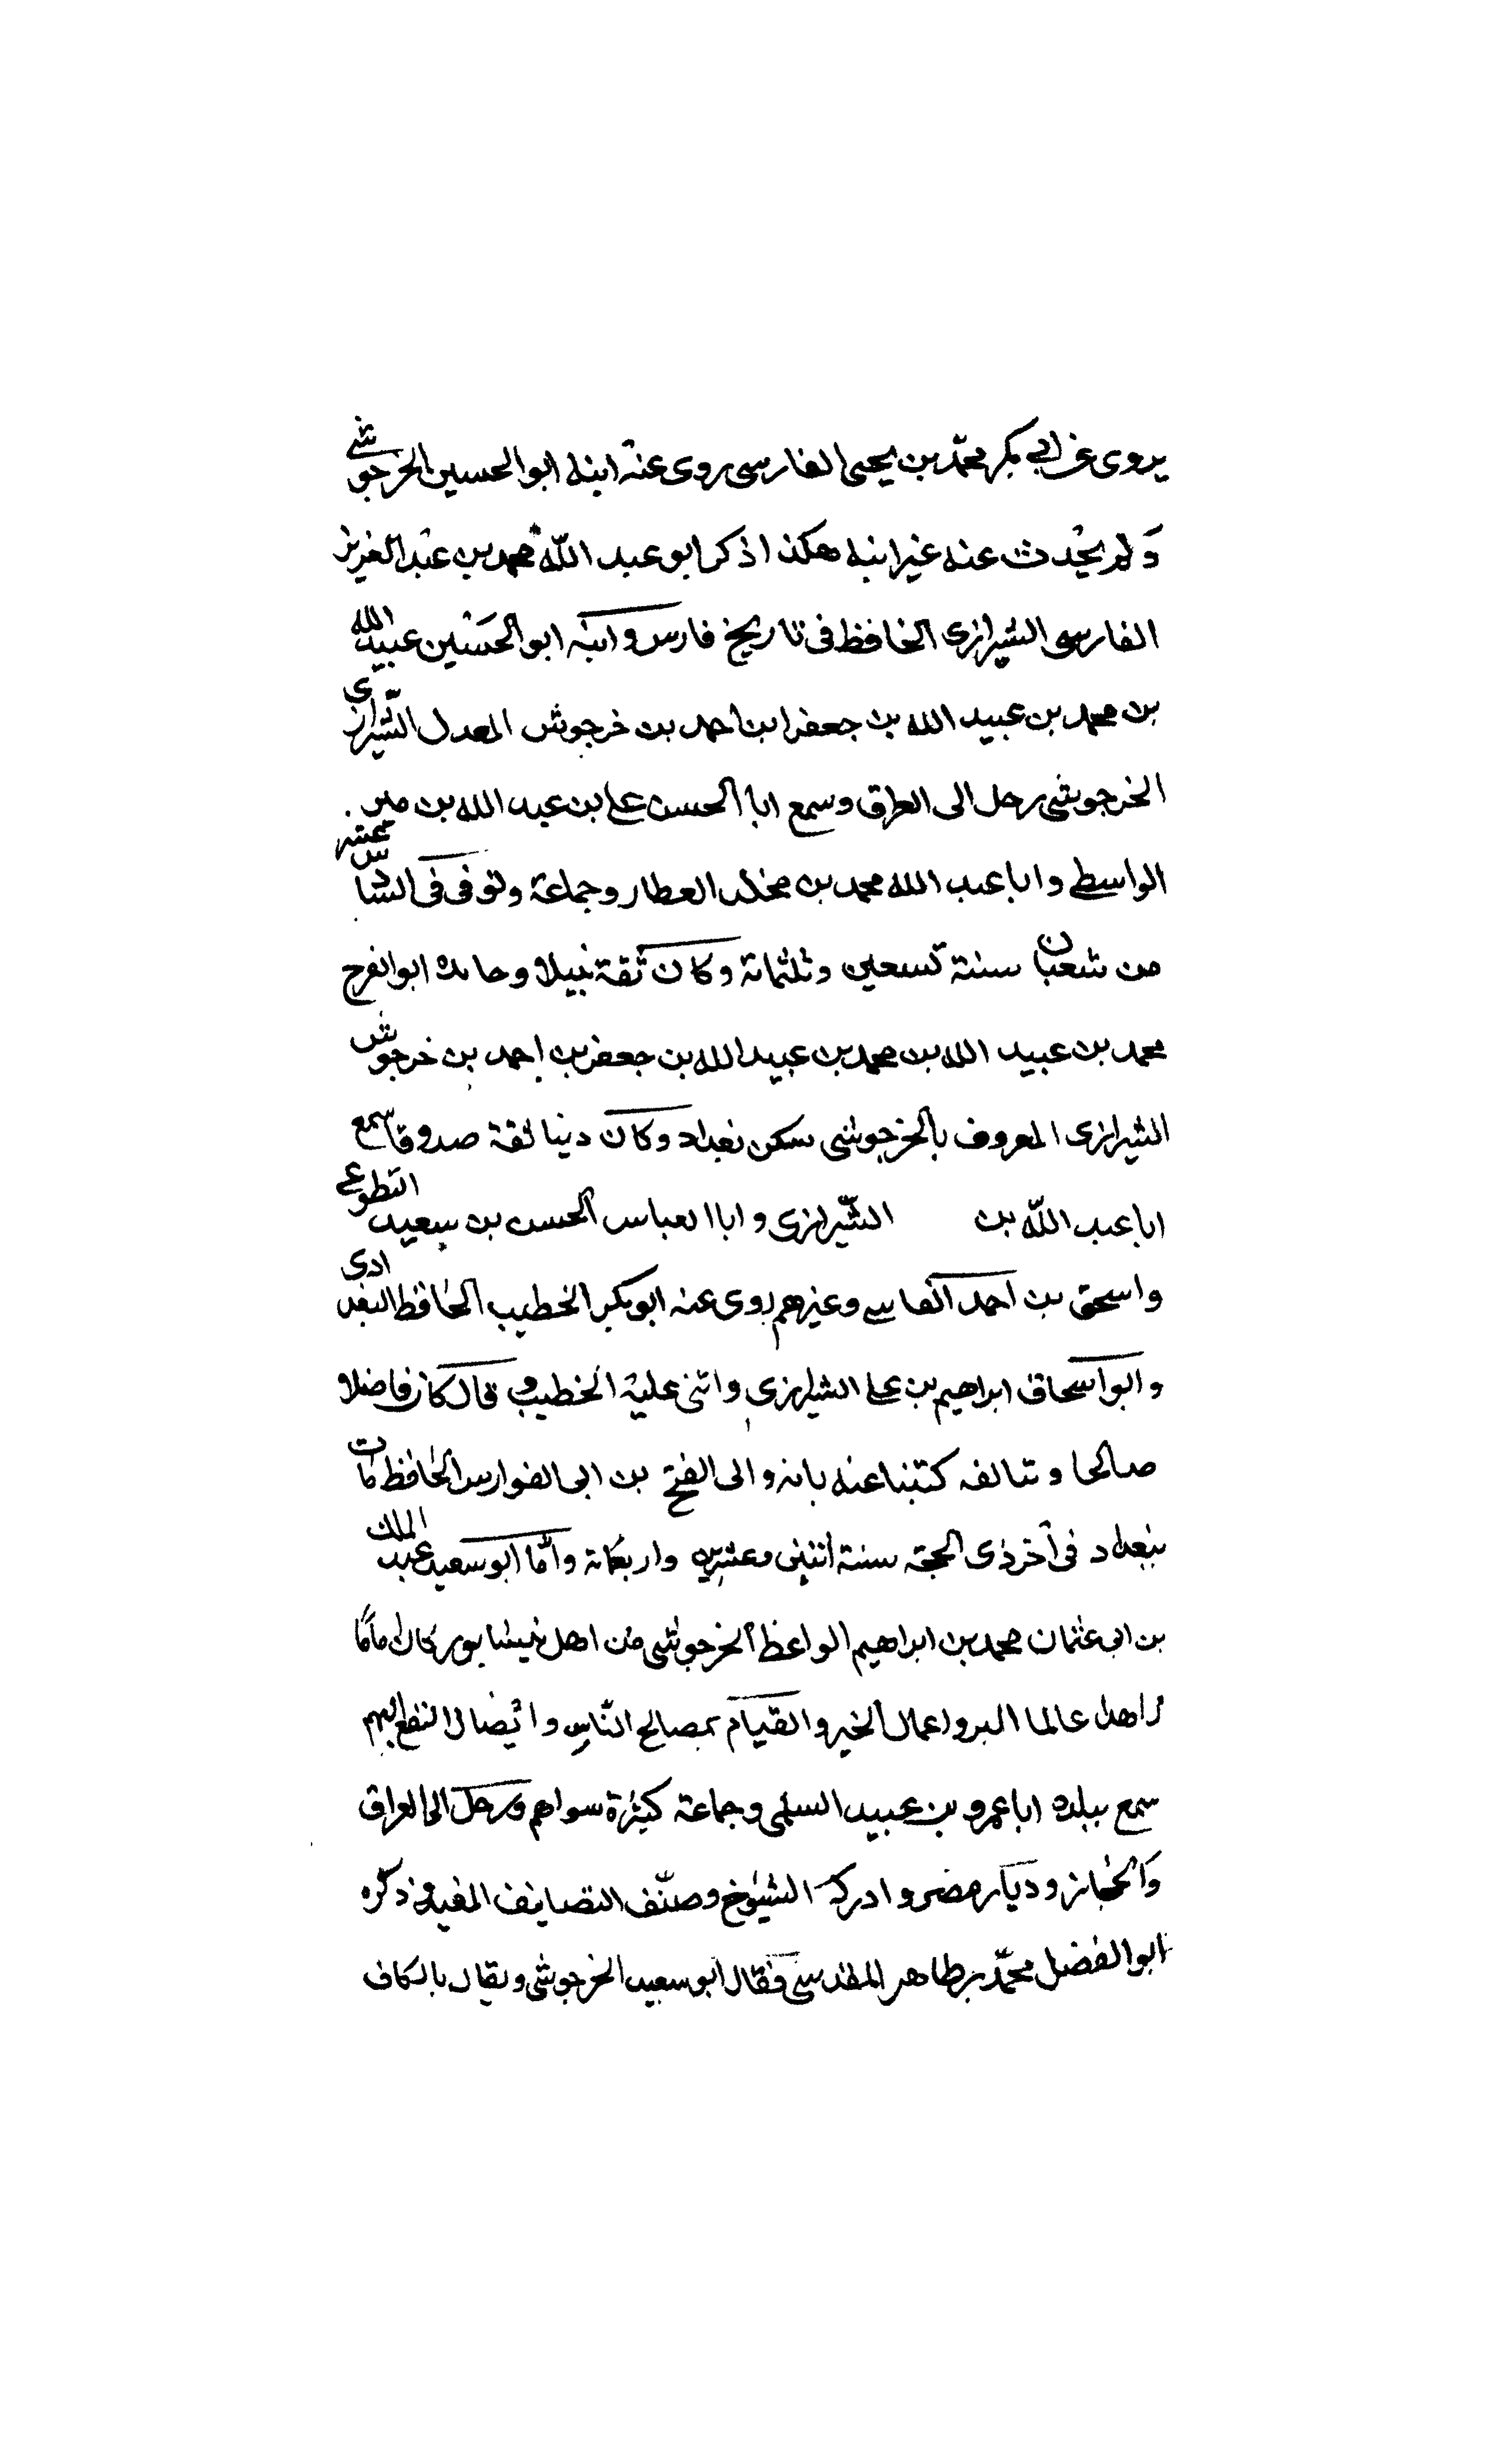 يروى عن ابى بكر محمّد بن يحيى الفارسى روى عنه ابنه ابو الحسين الخرجوشى
وَلم يحدث عنه غير ابنه هكذا ذكر ابو عبد اللّه محمد بن عبد العزيز
الفارسى الشيرازى الحافظ فى تاريخ فارس وابنه ابو الحسين عبيد الله
بن محمد بن عبيد الله بن جعفر ابن احمد بن خرجوش المعدل الشّيرازى
الخرجوشى رحل الى العراق وسمع ابا الحسن على بن عبد الله بن مبر
الواسطى وابا عبد الله محمد بن مخلد العطار وجماعة وتوفى فى السادس عشر
من شعبان سنة تسعين وثلثمائة وكان ثقة نبيلا وحافده ابو الفرج
محمد بن عبيد الله بن محمد بن عبيد الله بن جعفر بن احمد بن خرجوش
الشيرازى المعروف بالخرجوشى سكن بغداد وكان دينا ثقة صدوقا سمع
ابا عبد اللّه بن الشّيرازى وابا العباس الحسن بن سعيد المطوعى
واسحق بن احمد القاسى وغيرهم روى عنه ابو بكر الخطيب الحافظ البغدادى
وابو اسحاق ابراهيم بن على الشيرازى واثنى عليه الخطيب وقال كان فاضلا
صالحا وثنا لفه كتبنا عنه بانه والى الفتح بن ابى الفوارس الحافظ مات
ببغداد فى آخر ذى الحجة سنة اثنين وعشرين واربعمائة وامّا ابو سعيد عبد الملك
بن ابى عثمان محمد بن ابراهيم الواعظ الخرجوشى من اهل نيسابور كان اماما
زاهدا عالما البر واعمال الخير والقيام بمصالح النّاس وايضا لا النفع اليهم
سمع ببلده ابا عمرو بن عبيد السلمى وجماعة كثيرة سواهم ورحل الى العراق
وَالحجاز وديار مضر وادرك الشيوخ وصنّف التصانيف المفيدة ذكره
ابو الفضل محمّد بن طاهر المقدسى فقال ابو سعيد الخرجوشى ويقال بالكاف